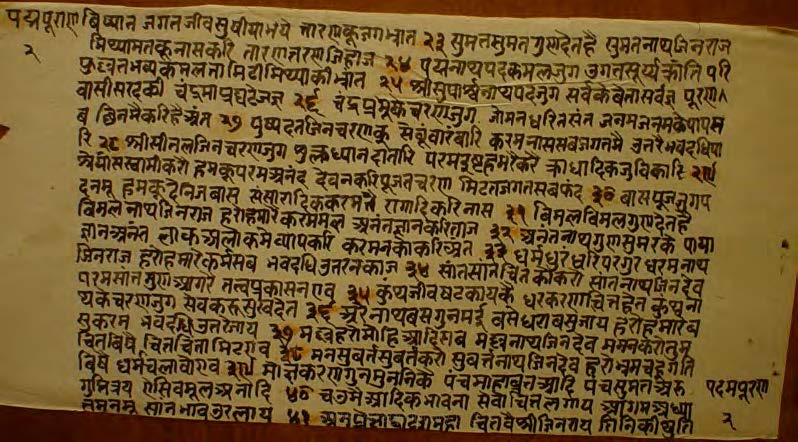 पद्मपुराण
२
विष्यात जगतजीव सुषीया भये तारणकू जगभ्रात २३ सुमतसुमत गुण देत है सुमतनाथ जिनराज
मिथ्यामतकू नासकरि तारण तरण जिहाज २४ पद्मनाथपदकमलजुग उगतसूर्य क्रांति परि
फुल्लत भव्यकमल नामिटी मिथ्याकी भ्रात २५ श्रीसुपार्श्वनाथपदजुग सर्वके वेता सर्वज्ञ पूरण
वासी सरदको चंद्रमा प्रघटे जज २६ चंद्रप्रभूके चरणजुग जो मन धरित संत जनम जनमके पापस
ब छिनमै करि है अंत २७ पुष्पदंत जिनचरणकू सेवूं वारंवारि करम नास सब जगतमै उतरे भवदधि पा
रि २८ श्रीसीतल जिनचरणजुग शुक्लध्यान दातारि परम हमरे करे क्रोधादिक जु विकारि २९
श्रेयांसस्वामी करो हमकू परम अनंद देवनकरि पूजत चरण मिटत जगत सब फंद ३० वासपूज जुगप
द नमू हमकू दे निज वास संसारादिक करमते रागादि करि नास ३१ विमल विमल गुण देत है
विमलनाथ जिनराज हरो हमारे करममल अनंतज्ञान करि ताज ३२ अनंतनाथ गुण सुमरके पाया
ज्ञान अनंत लोक अलोकमे व्यापकरि करमनको करि अंत ३३ धर्मधुरधरि परगुर धरमनाथ
जिनराज हरो हमारे कर्म सब भवदधि उतरन काज ३४ सात सात चित कौ करो सातनाथ जिनदेव
परम सांत गुण आगरे तत्वप्रकासन एव ३५ कुंथजीव षटकायकै धर करणा चित हेत कुंथुना
थके चरणजुग सेवकत्त सुख देत ३६ अरनाथ बस गुनमई वसे धरा वसु जाय हरो हमारे व
सुकरम भवदधि उतर जाय ३७ मल्ल हरो मोहि आदि सब मल्लनाथ जिनदेव मम नकरो तुम
चितविषै चितचिंता मिट एव ३८ मनसुवत सुवत करो सुव्रतनाथ जिनदेव हरो भ्रम चहूंगति
विषे धर्म चलावो एव ३९ मात करण गुन मुननिके पंचमाहाव्रत आदि पंच सुमत अरु
गुप्ति त्रय ऐ सिवमूल अनादि ४० चतमे आदिक भावना सेवो चित लगाय आगम अध्या
तमनमू सात भाव उर लाय ४१
पदमपुरण
२